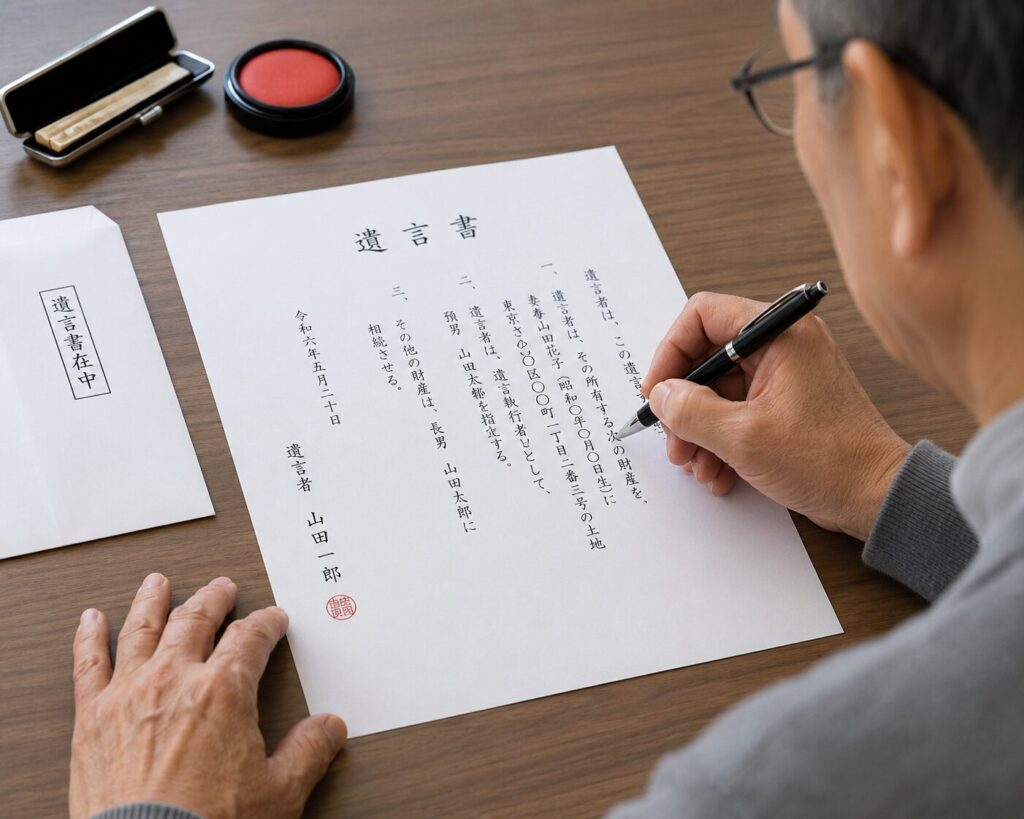 遺言書
遺言者は、この遺言
一、遺言者は、その所有する次の財産を、
山田花子(昭和〇年〇月〇日生)に
東京 〇区〇〇町一丁目二番三号の土地
二、遺言者は、遺言執行者として、
男 山田太 を指定する。
三、その他の財産は、長男 山田太郎に
相続させる。
令和六年五月二十日
遺言者 山田一郎
遺言書在中